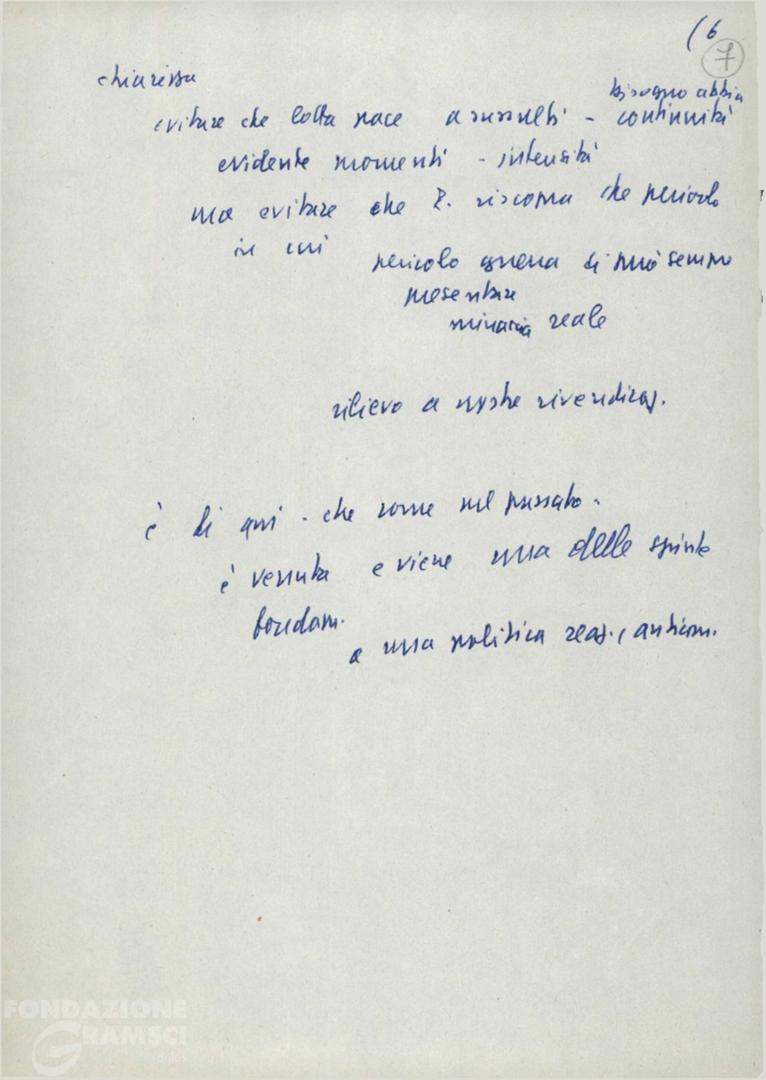 (6
7
chiarezza
bisogno abbia
evitare che lotta pace a sussulti - continuità
evidente momenti - intensità
ma evitare che si riscopra che pericolo
in cui
pericolo guerra si può sempre
presentare
minaccia reale
rilievo a nostre rivendicaz.
è di qui - che come nel passato -
è venuta e viene una delle spinte
fondam.
a una politica reaz., anticom.
FONDAZIONE
GRAMSCI